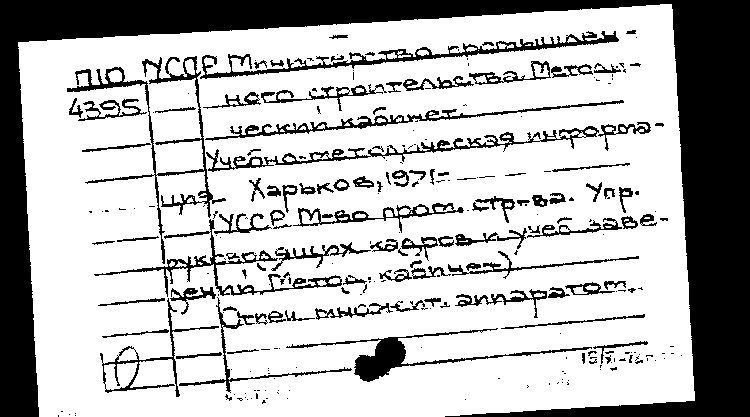 П10 УССР Министерство промышлен-
4395 ного строительства. Методи-
ческий кабинет.
Учебно-методическая информа-
ция. Харьков, 1971-
(УССР. М-во пром. стр-ва. Упр.
руководящих кадров и учеб. заве-
дений. Метод. кабинет)
Отпеч. множит. аппаратом.